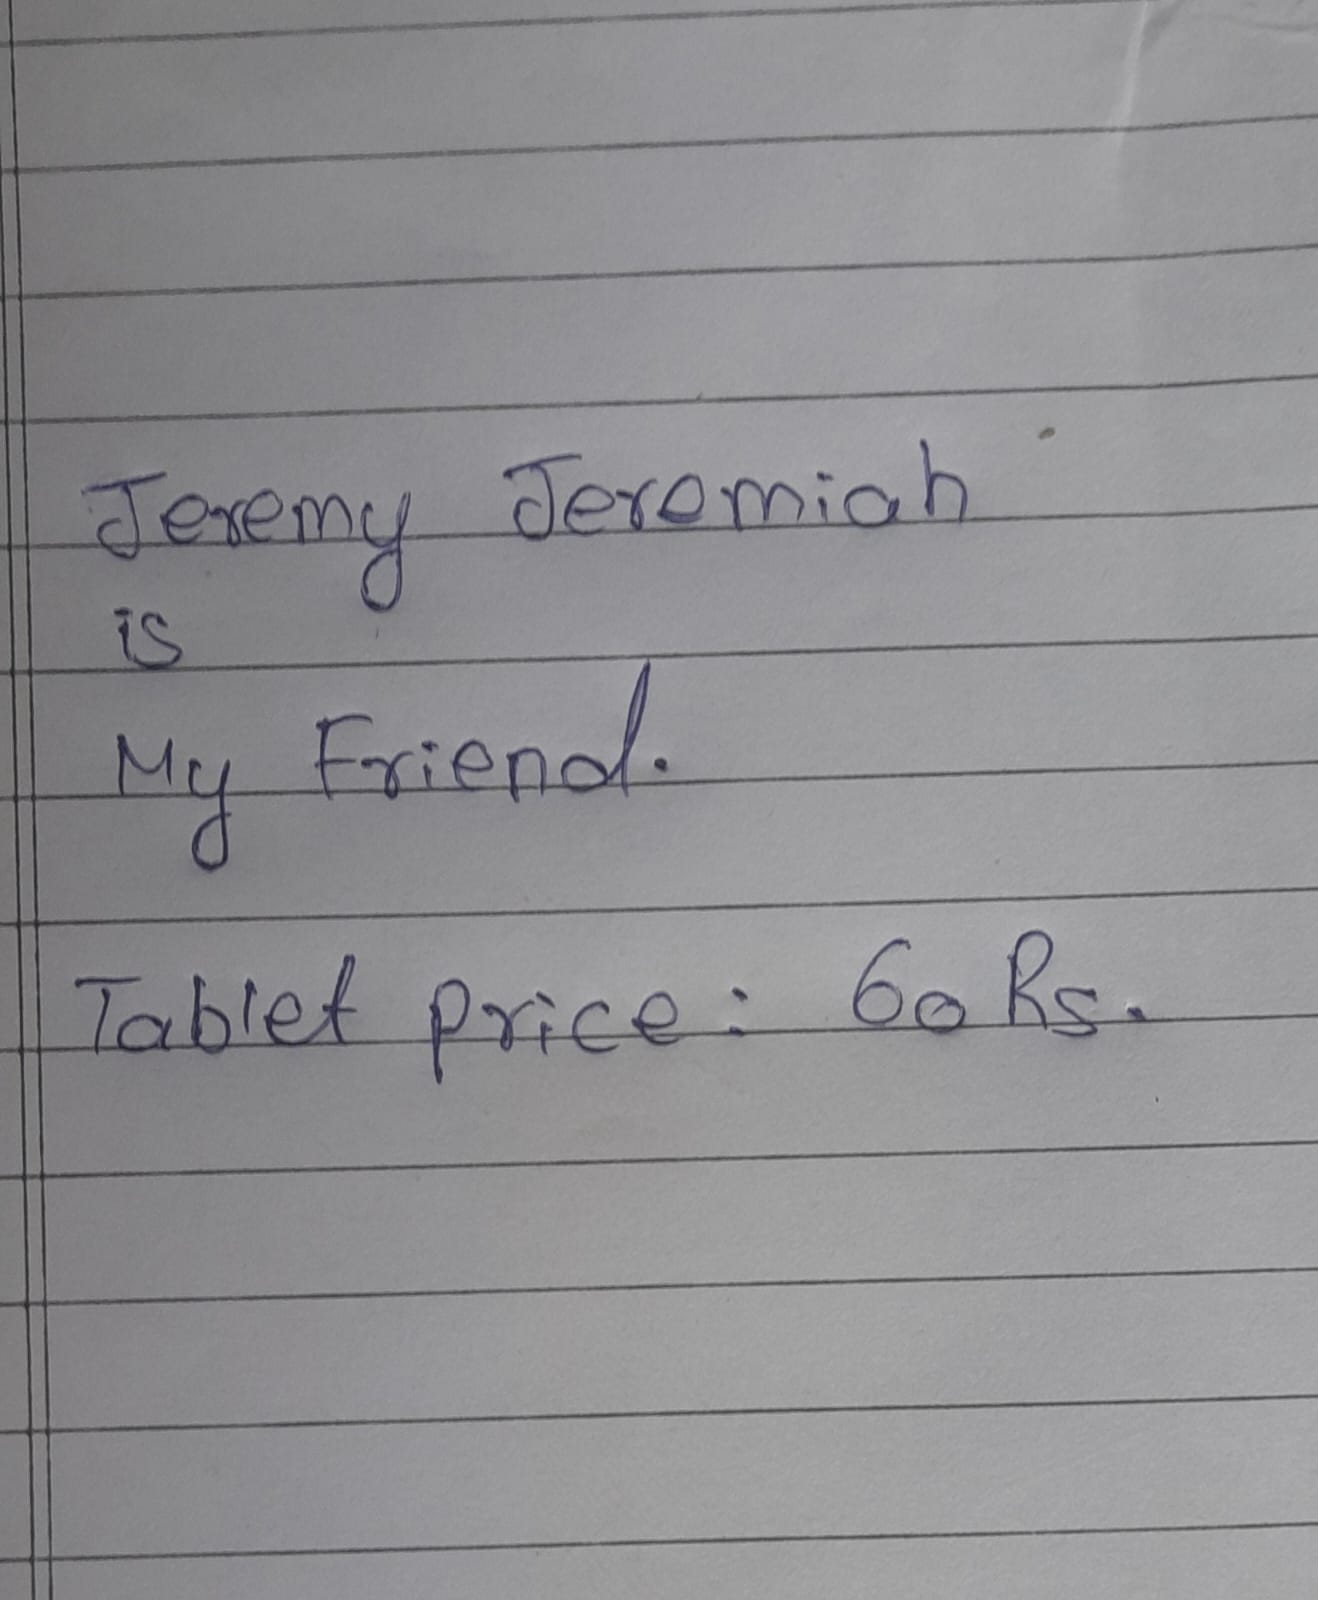 Jeremy Jeremiah
is
My Friend.
Tablet price: 60 Rs.